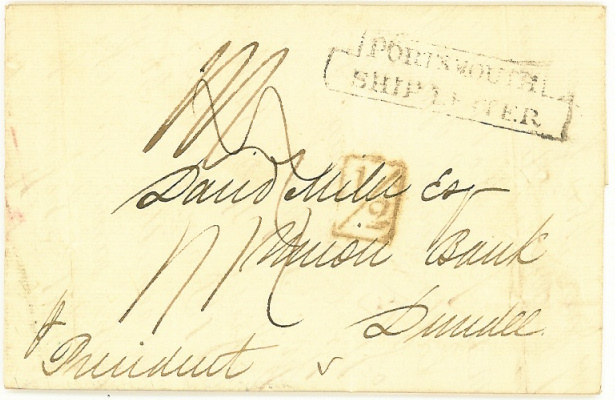 PORTSMOUTH
SHIP LETTER
1/2
David Mill Esq
Union Bank
Dundee
President